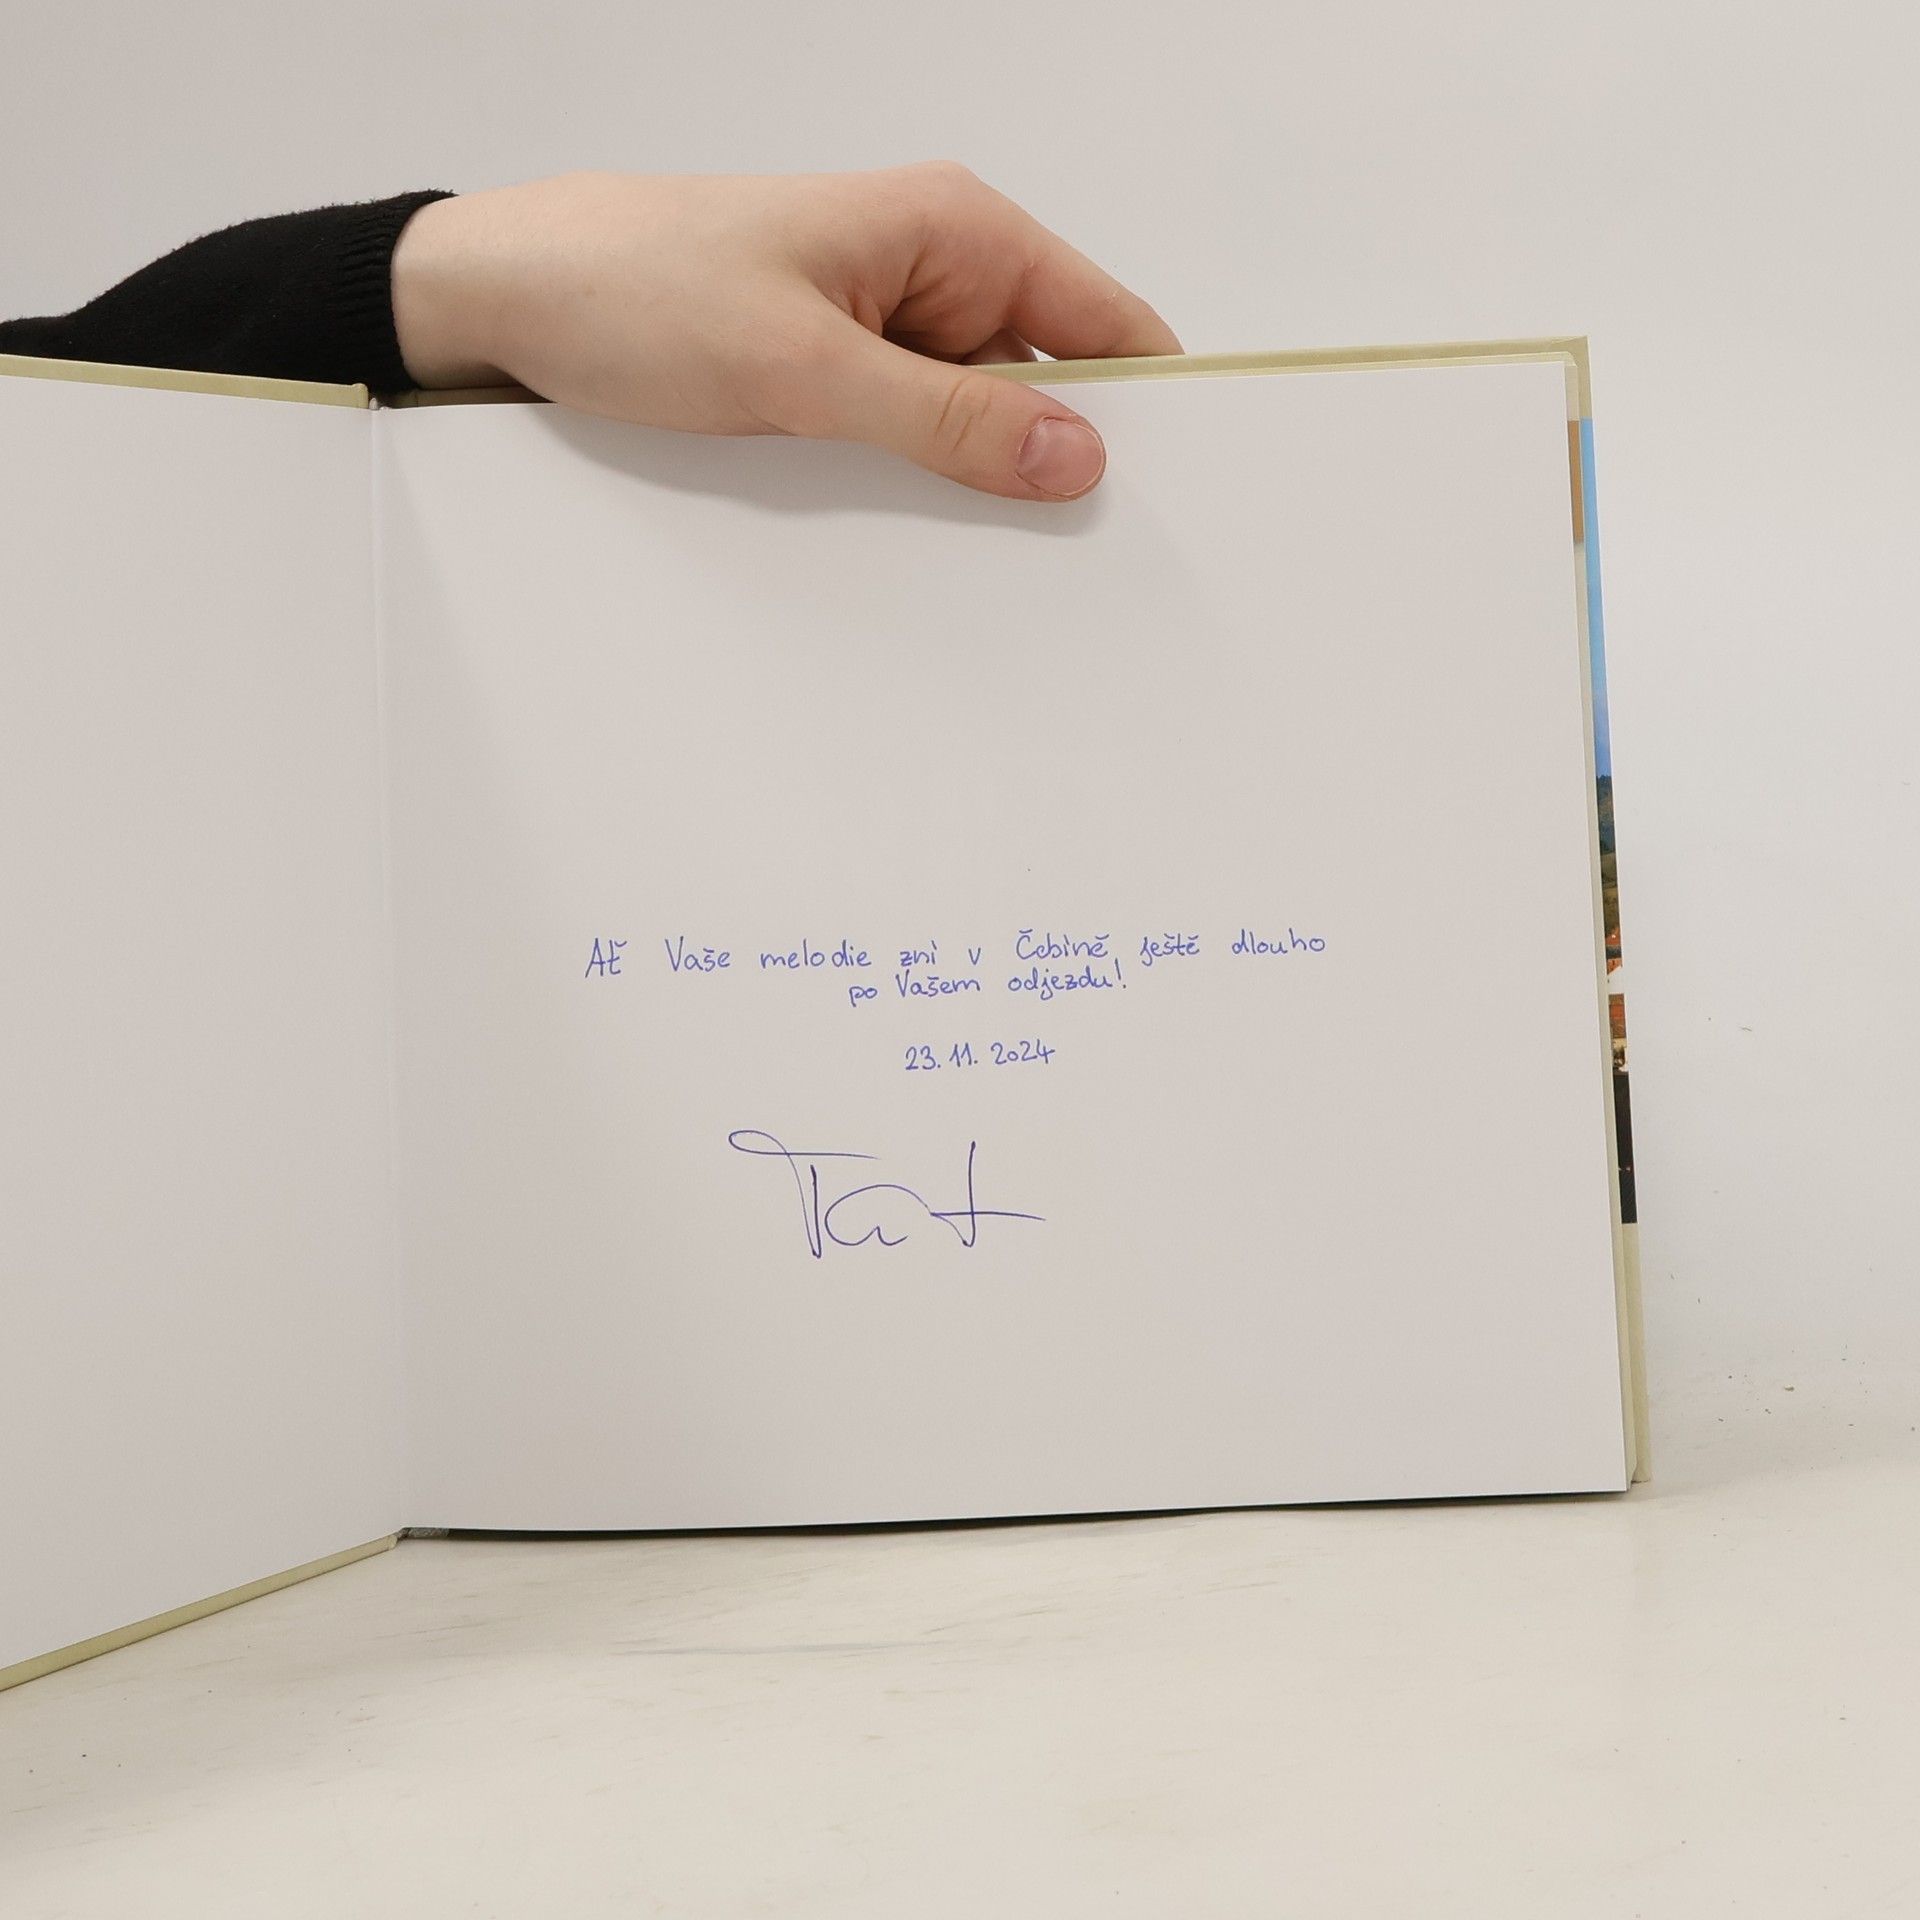 Ať Vaše melodie zní v Čebíně ještě dlouho
po Vašem odjezdu!
23. 11. 2024